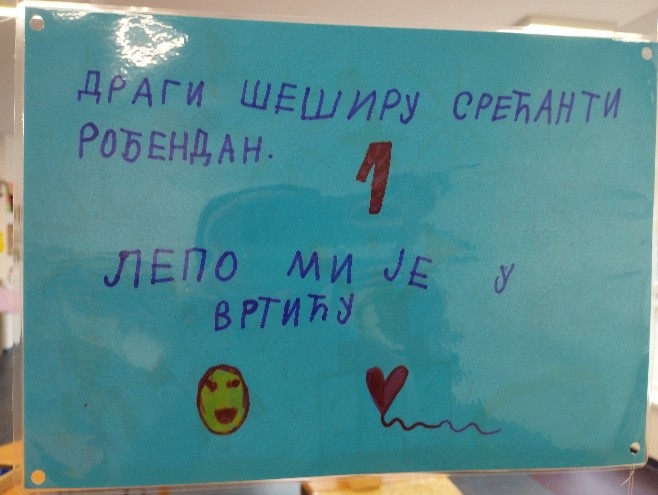 ДРАГИ ШЕШИРУ СРЕЋАНТИ
РОЂЕНДАН.
1
ЛЕПО МИ ЈЕ У
ВРТИЋУ